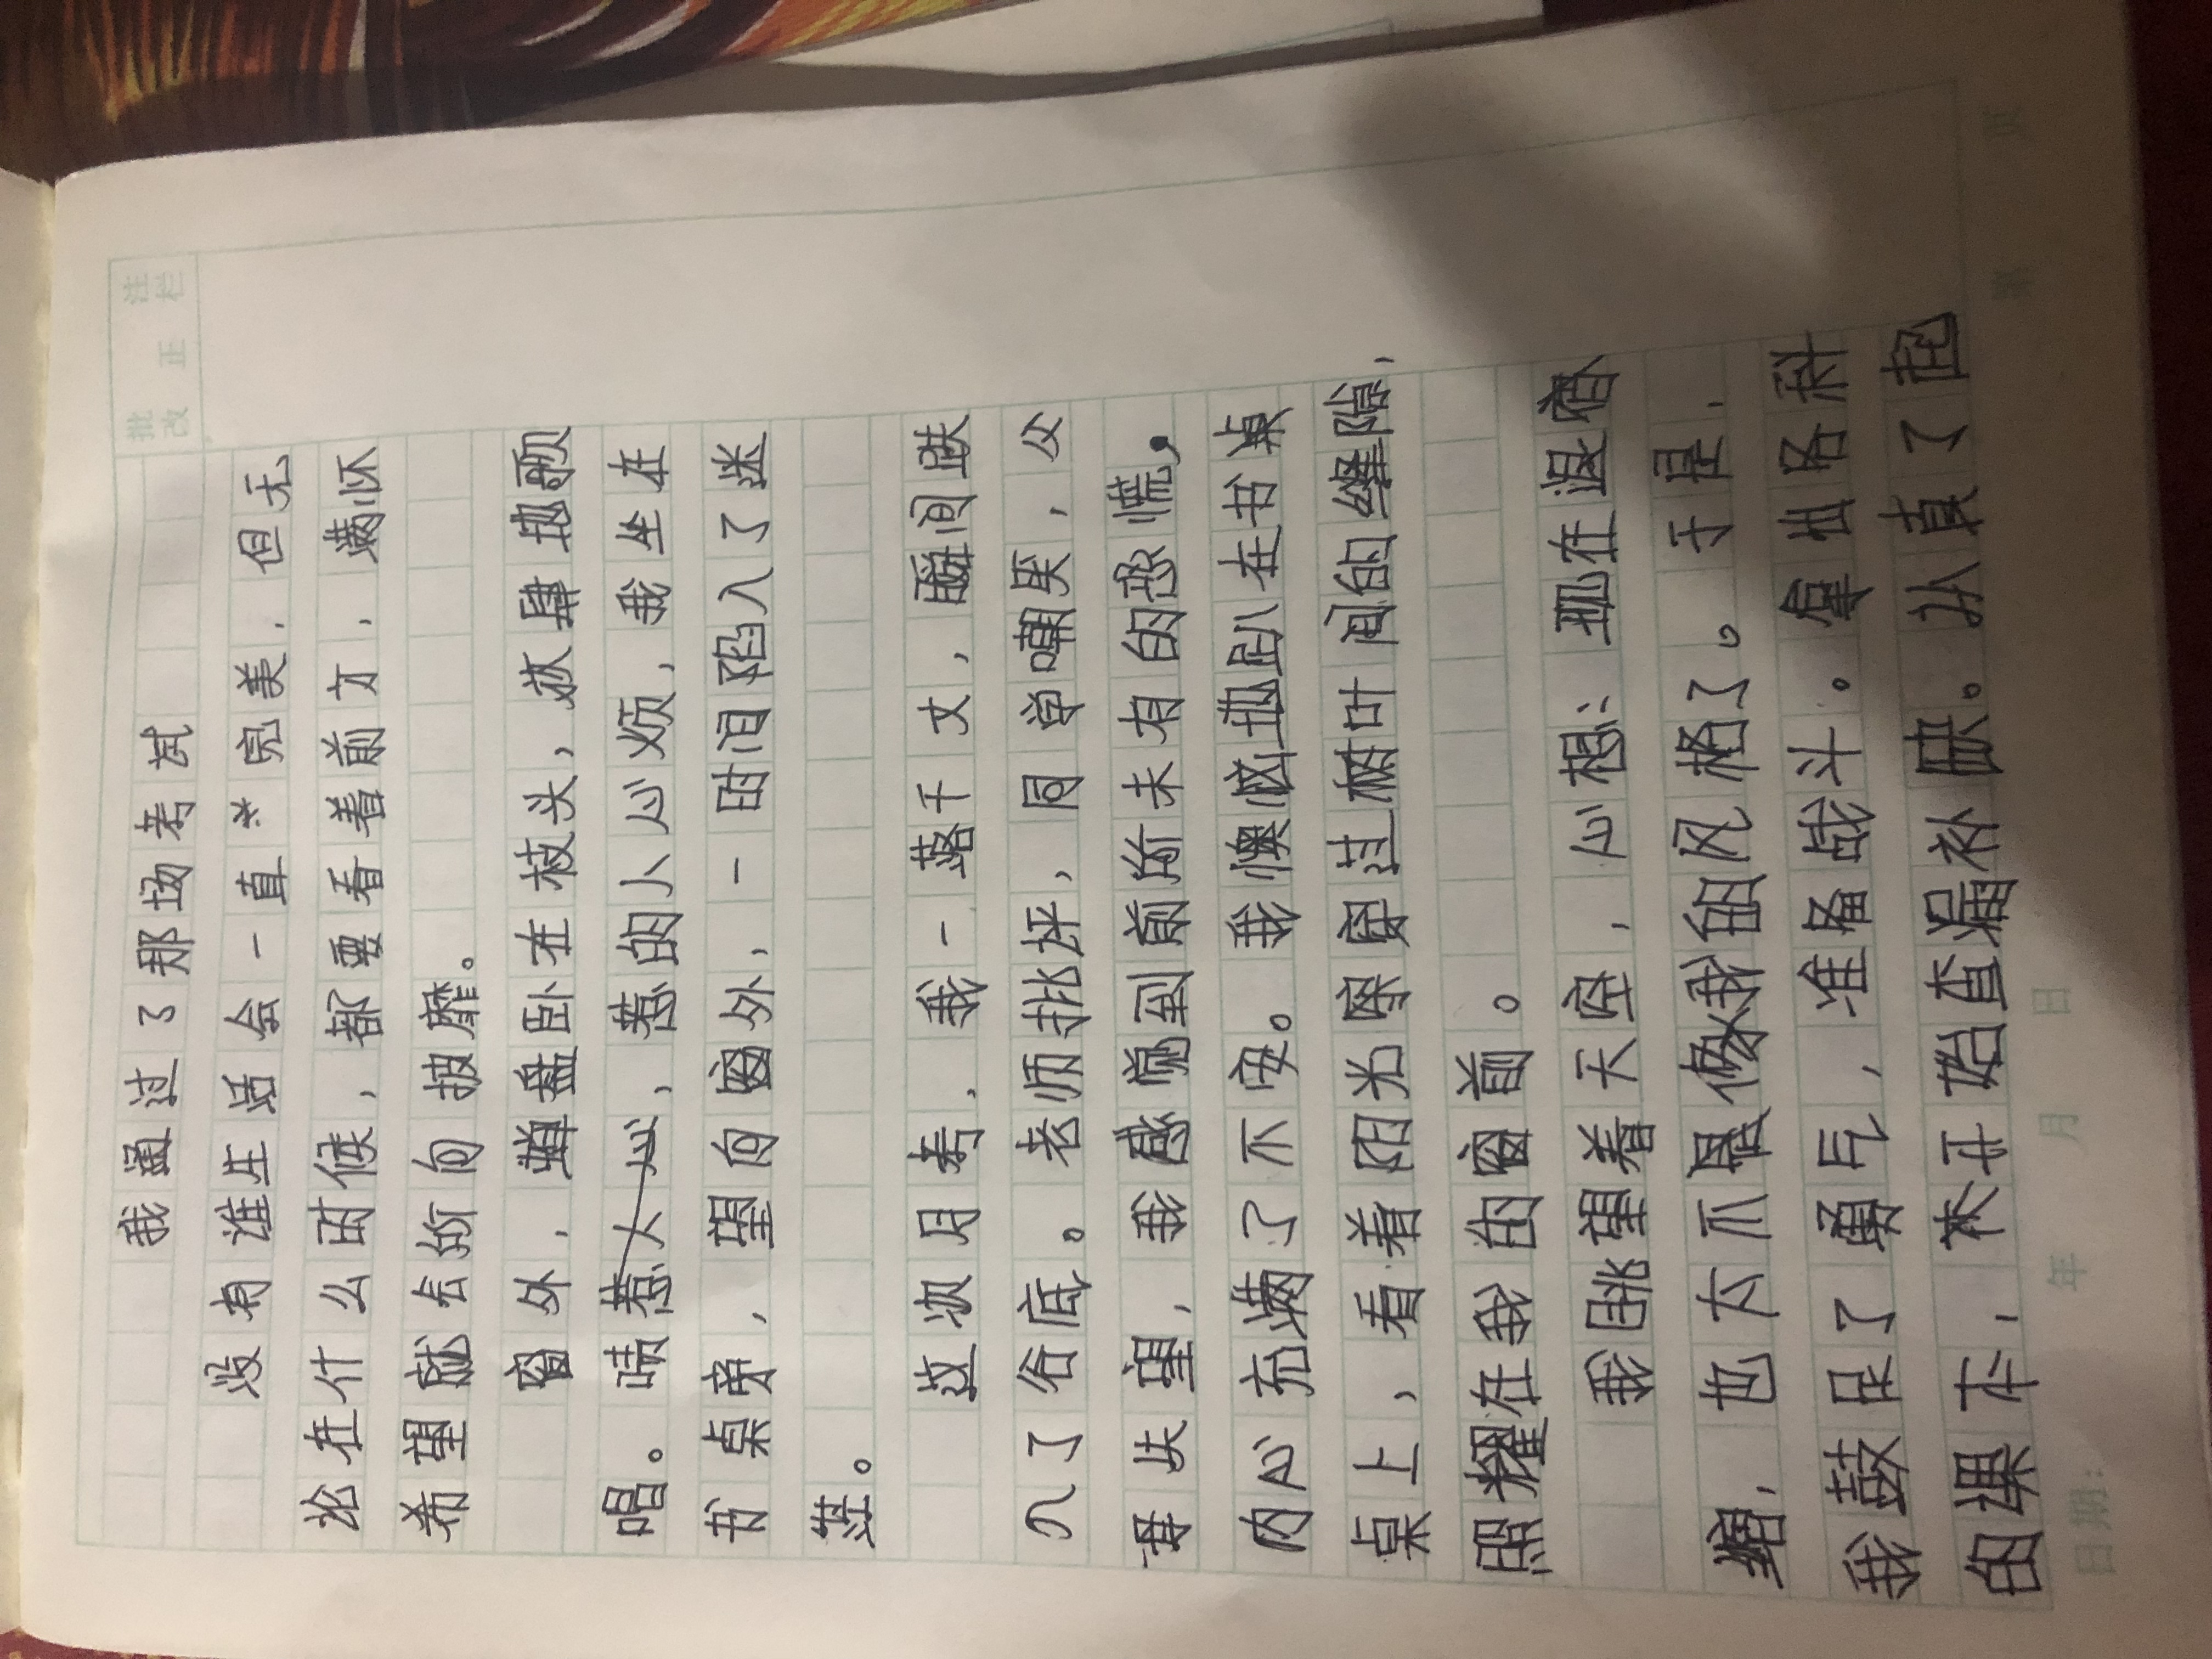 批改 正 注栏
我通过了那场考试
没有谁生活会一直**完美，但无
论在什么时候，都要看着前方，满怀
希望就会所向披靡。
窗外，蝉盘卧在枝头，放肆地歌
唱。啧惹人心，惹的人心烦，我坐在
书桌旁，望向窗外，一时间陷入了迷
茫。
这次月考，我一落千丈，瞬间跌
入了谷底。老师批评，同学嘲笑，父
母失望，我感觉到前所未有的恐慌，
内心充满了不安。我懊恼地趴在书桌
桌上，看着阳光穿过树叶间的缝隙，
照耀在我的窗前。
我眺望着天空，心想：现在退缩
缩，也太不是像我的风格了。于是，
我鼓足了勇气，准备战斗。拿出各科
的课本，开始查漏补缺。认真了起
日期： 年 月 日 第 页